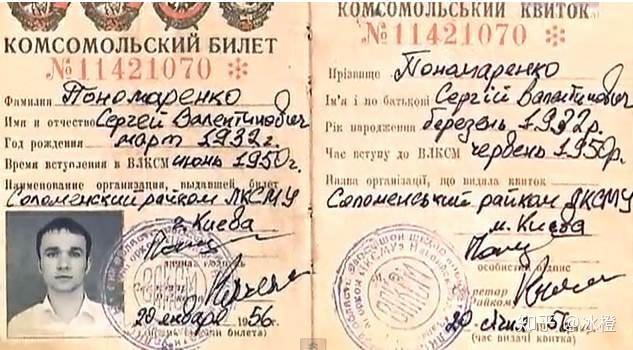 КОМСОМОЛЬСКИЙ БИЛЕТ
№11421070 *
Фамилия Пономаренко
Имя и отчество Сергей Валентинович
Год рождения март 1932г.
Время вступления в ВЛКСМ июнь 1950г.
Наименование организации, выдавшей билет
Соломенский райком ЛКСМУ
г. Киева
личная подпись
20 января 1956 г.
(время выдачи билета)
КОМСОМОЛЬСЬКИЙ КВИТОК
№11421070 *
Прізвище Пономаренко
Ім'я і по батькові Сергій Валентинович
Рік народження березень 1932р.
Час вступу до ВЛКСМ червень 1950р.
Назва організації, що видала квиток
Соломенський райком ЛКСМУ
м. Києва
особистий підпис
20 січня 1956
(час видачі квитка)
知乎 @冰橙